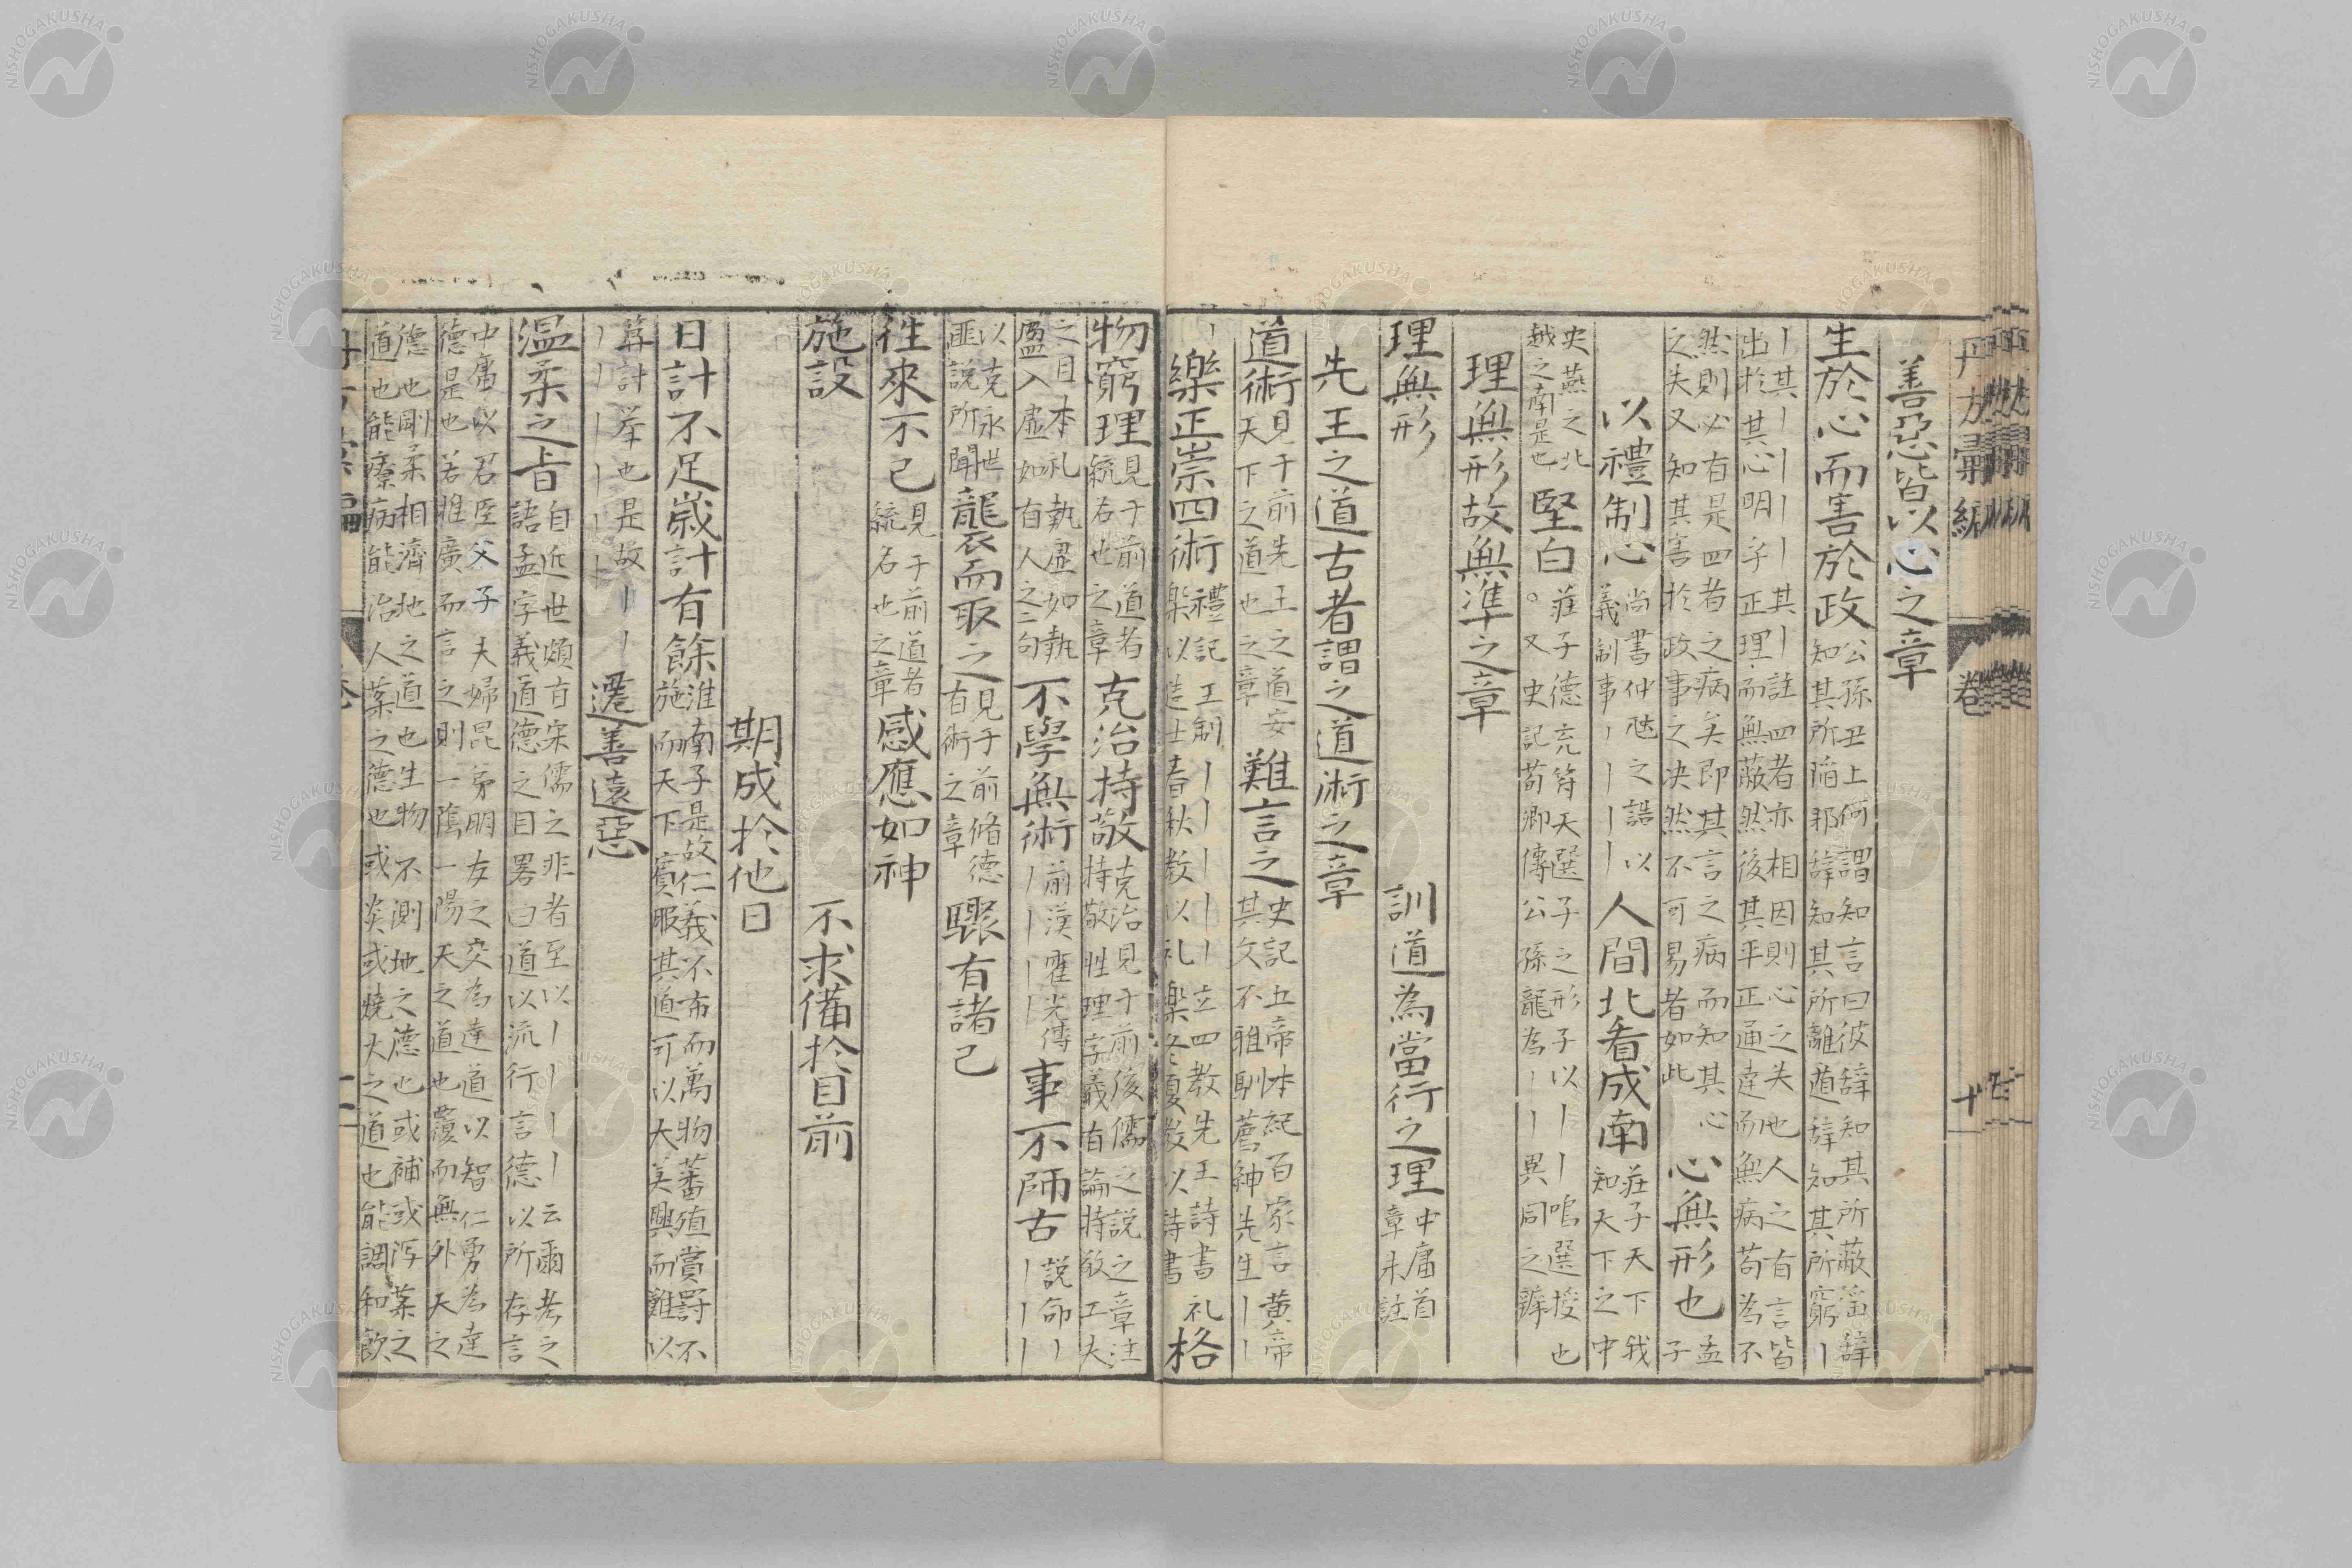 善惡皆以心之章
生於心而害於政
公孫丑上何謂知言曰彼辭知其所蔽淫辭
知其所陷邪辭知其所離遁辭知其所窮〡
〡其〡〡〡〡其〡註四者亦相因則心之失也人之有言皆
出於其心明乎正理而無蔽然後其平正通達而無病苟為不
然則必有是四者之病矣即其言之病而知其心
之失又知其害於政事之决然不可易者如此
心無形也
孟
子
以禮制心
尚書仲虺之誥以
義制事〡〡〡〡
人間北看成南
莊子天下我
知天下之中
史燕之北
越之南是也
堅白
莊子德充符天選子之形子以〡〡鳴選授也
。又史記荀卿傳公孫龍為〡〡異同之辨
理無形故無準之章
理無形
訓道為當行之理
中庸首
章朱註
先王之道古者謂之道術之章
道術
見于前先王之道安
天下之道也之章
難言之
史記五帝本紀百家言黃帝
其文不雅馴薦紳先生〡〡
〡
樂正崇四術
禮記王制〡〡〡〡〡〡立四教先王詩書礼
樂以造士春秋教以礼樂冬夏教以詩書
格
物窮理
見于前道者
統名也之章
克治持敬
克治見于前後儒之說之章注
持敬性理字義有論持敬工夫
之目本礼執虛如執
盈入虛如有人之二句
不學無術
前漢霍光傳
〡〡〡〡
事不師古
説命〡
〡〡〡
以克永世
匪說所聞
襲而取之
見于前脩德
有術之章
驟有諸己
往來不已
見于前道者
統名也之章
感應如神
施設
不求備於目前
期成於他日
日計不足歲計有餘
淮南子是故仁義不布而萬物蕃殖賞罰不
施而天下賓服其道可以大美興而難以
算計挙也是故〡〡
〡〡〡〡〡〡〡
遷善遠惡
温柔之旨
自近世頗有宋儒之非者至以〡〡〡〡云爾考之
語孟字義道德之目畧曰道以流行言德以所存言
中庸以君臣父子夫婦昆弟朋友之交為達道以智仁勇為達
德是也若推廣而言之則一陰一陽天之道也覆而無外天之
德也剛柔相濟地之道也生物不測地之德也或補或泻薬之
道也能療病能治人薬之德也或炎或燒火之道也能調和飲
丹方彙編
卷